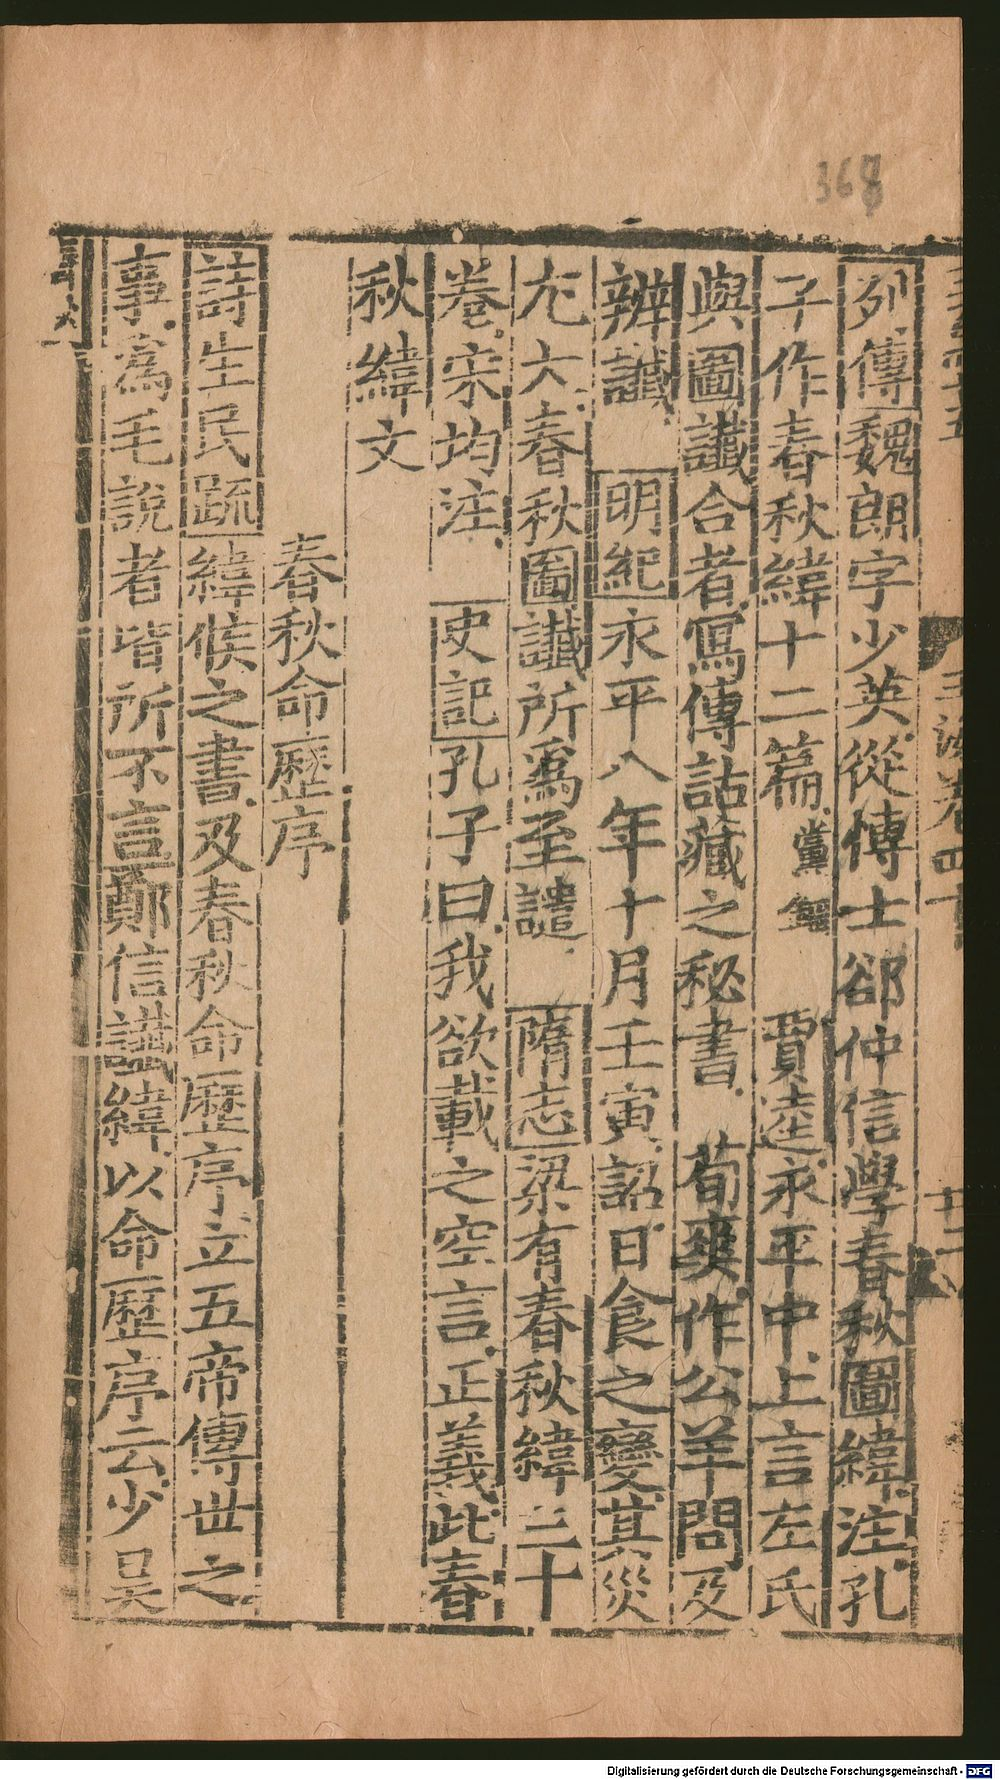 368
列傳魏朗字少英從博士郤仲信學春秋圖緯注孔
子作春秋緯十二篇黨錮 賈逵永平中上言左氏
與圖讖合者寫傳詁藏之秘書 荀爽作公羊問及
辨讖 明紀永平八年十月壬寅詔日食之變其災
尤大春秋圖讖所爲至譴 隋志梁有春秋緯三十
卷宋均注 史記孔子曰我欲載之空言正義此春
秋緯文
春秋命歷序
詩生民疏緯候之書及春秋命歷序立五帝傳世之
事爲毛說者皆所不言鄭信讖緯以命歷序云少昊
Digitalisierung gefördert durch die Deutsche Forschungsgemeinschaft - DFG